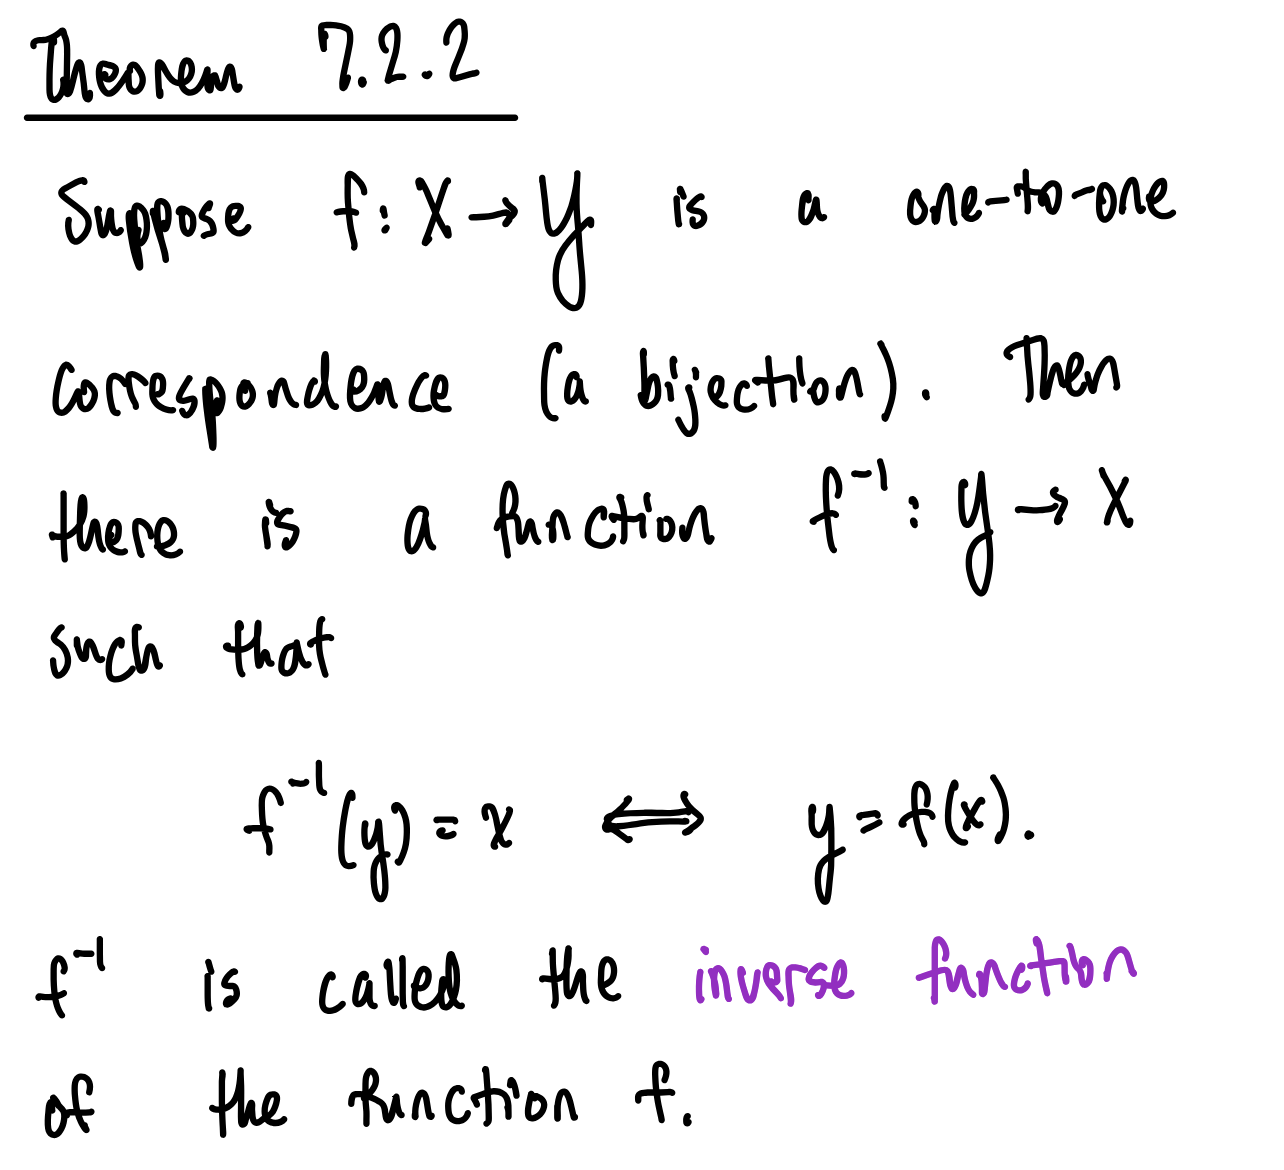 Theorem 7.2.2
Suppose f: X → Y is a one-to-one
correspondence (a bijection). Then
there is a function f⁻¹: Y → X
such that
f⁻¹(y) = x ⟺ y = f(x).
f⁻¹ is called the inverse function
of the function f.